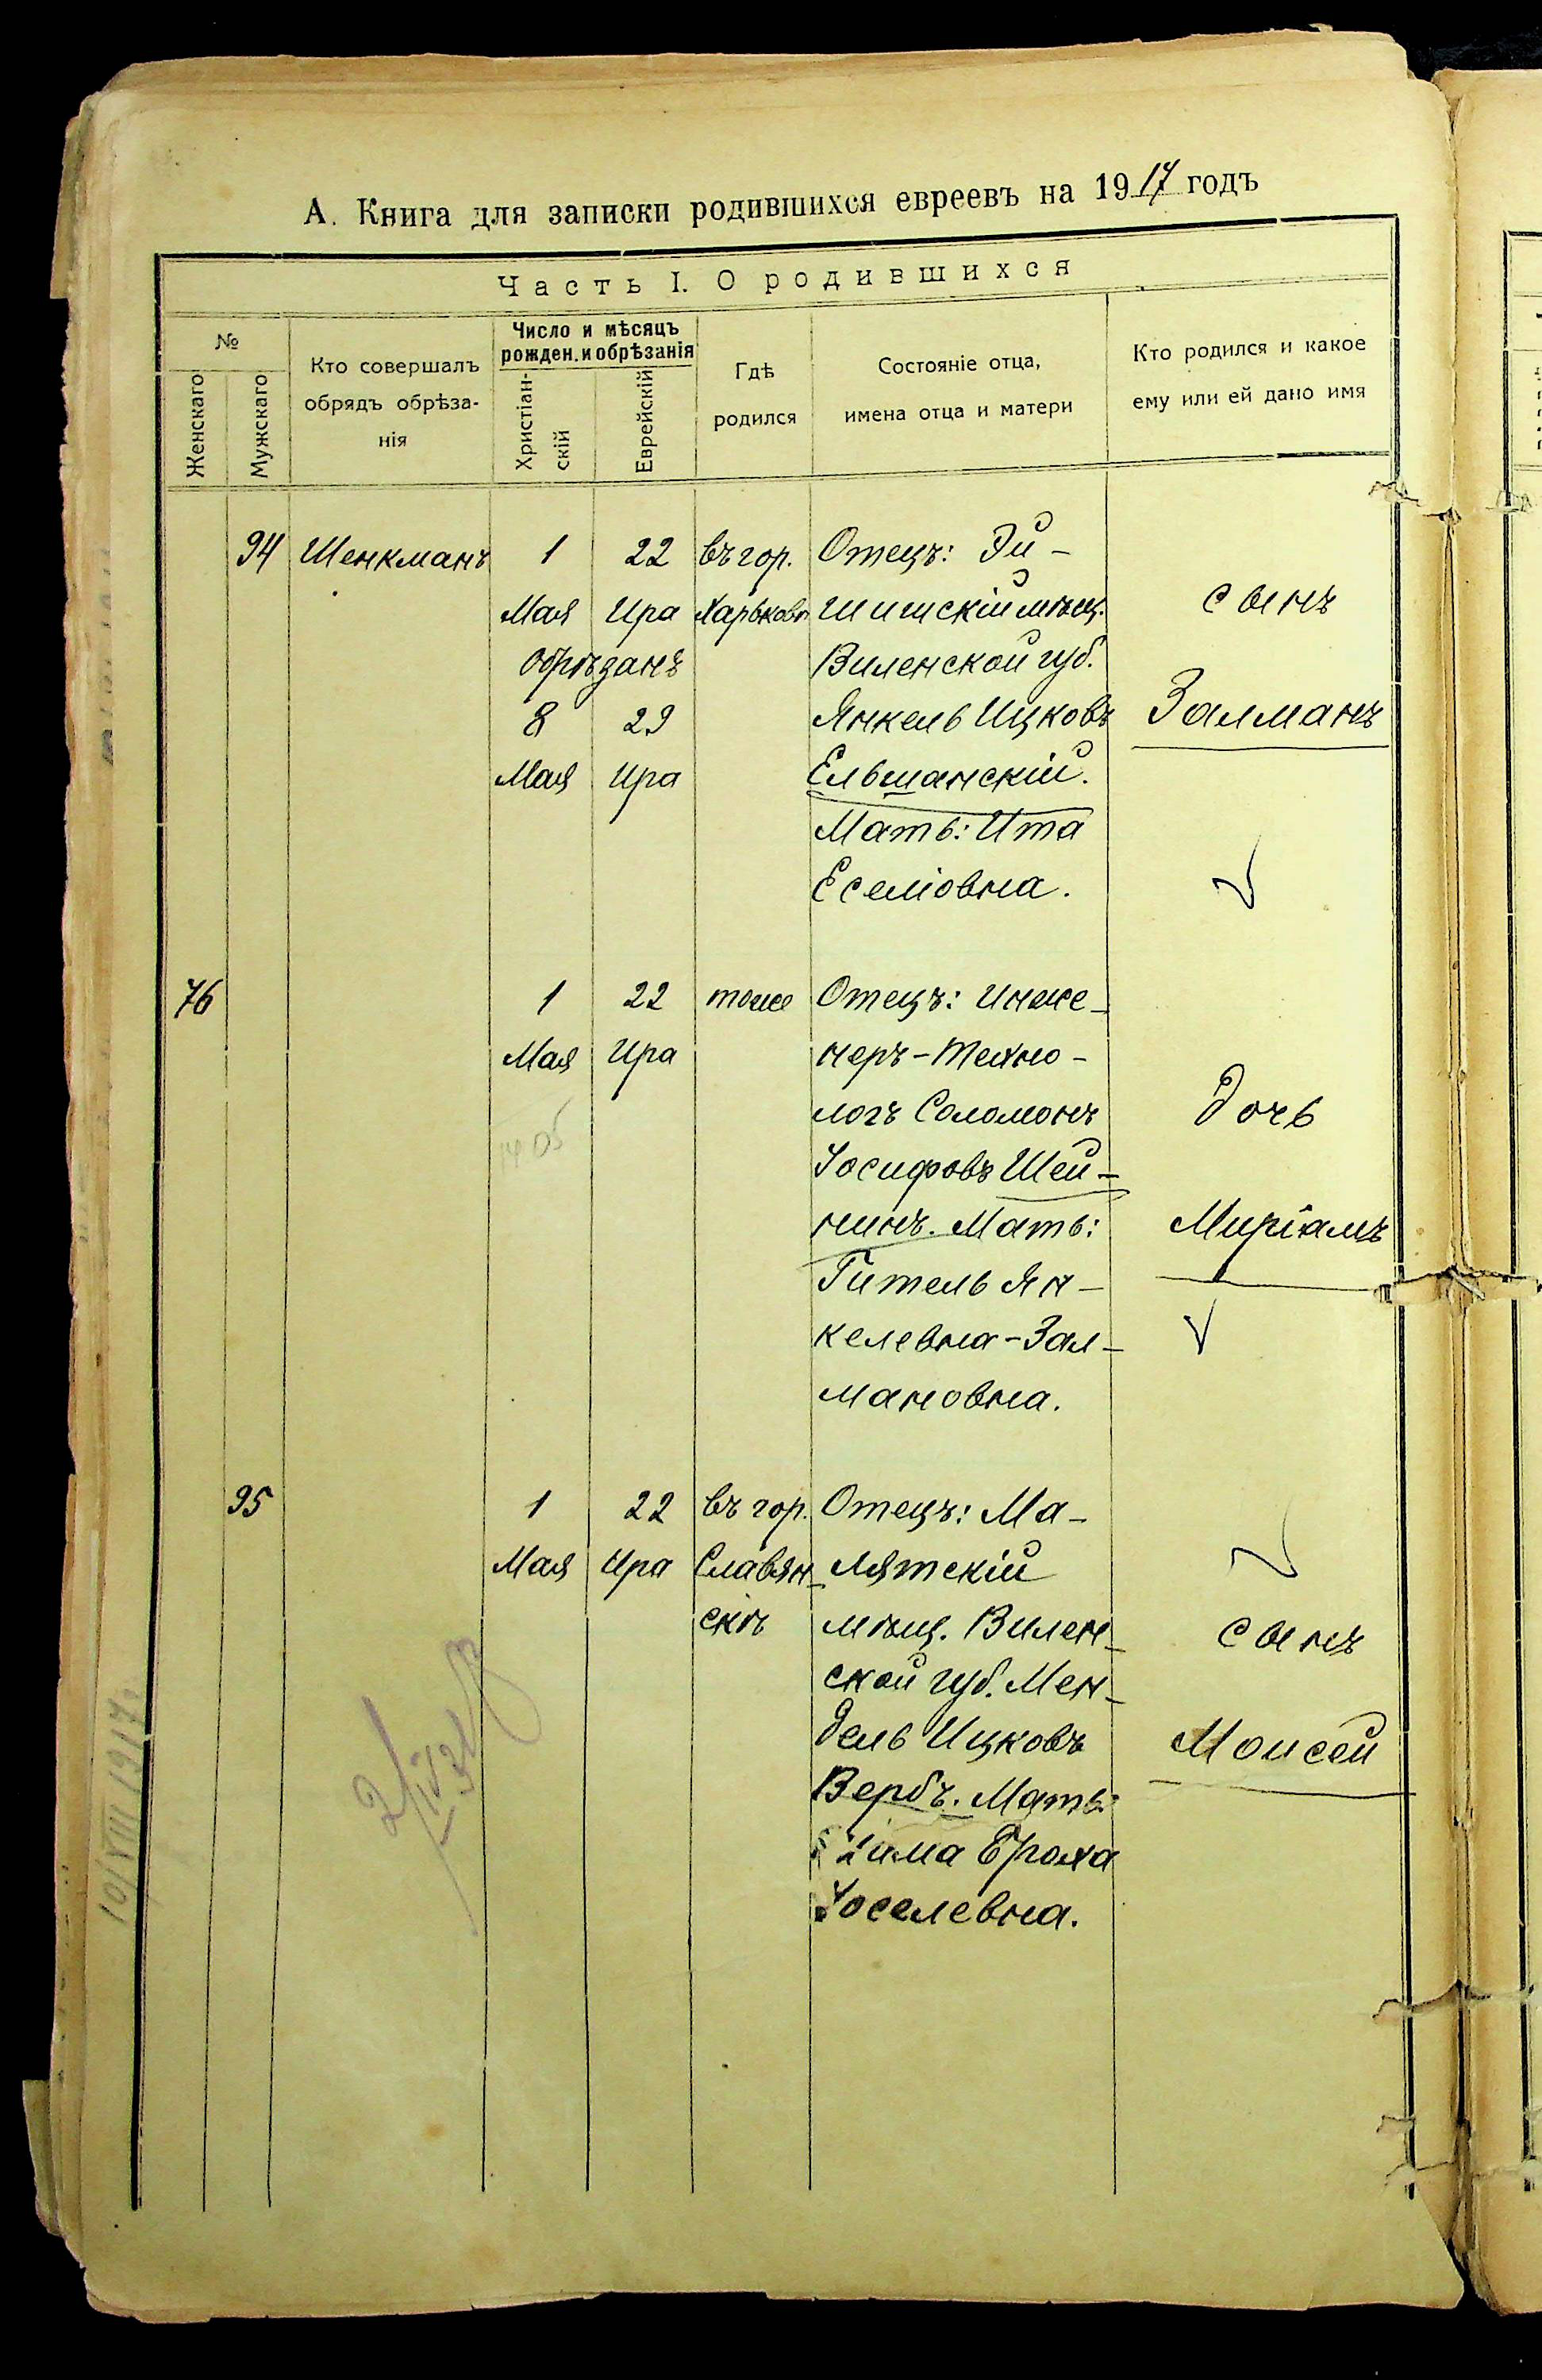 А. Книга для записки родившихся евреевъ на 1917 годъ
Часть I. О родившихся
№
Женскаго
Мужскаго
Кто совершалъ
обрядъ обрѣза-
нія
Число и мѣсяцъ
рожден. и обрѣзанія
Христіан-
скій
Еврейскій
Гдѣ
родился
Состояніе отца,
имена отца и матери
Кто родился и какое
ему или ей дано имя
94
Шенкманъ
1
Мая
Обрѣзанъ
8
Мая
22
Ира
29
Ира
въ гор.
Харьковѣ
Отецъ: Эй-
шишскій мѣщ.
Виленской губ.
Янкель Ицковъ
Ельшанскій.
Мать: Ита
Еселіовна.
сынъ
Залманъ
76
1
Мая
22
Ира
тоже
Отецъ: инже-
неръ-техно-
логъ Соломонъ
Іосифовъ Шей-
нинъ. Мать:
Гитель Ян-
келевна-Зал-
мановна.
дочь
Миріамъ
95
1
Мая
22
Ира
въ гор.
Славян-
скѣ
Отецъ: Ма-
лятскій
мѣщ. Вилен-
ской губ. Мен-
дель Ицковъ
Вербъ. Мать:
Броха
Іоселевна.
сынъ
Моисей
10/VIII 1917г.